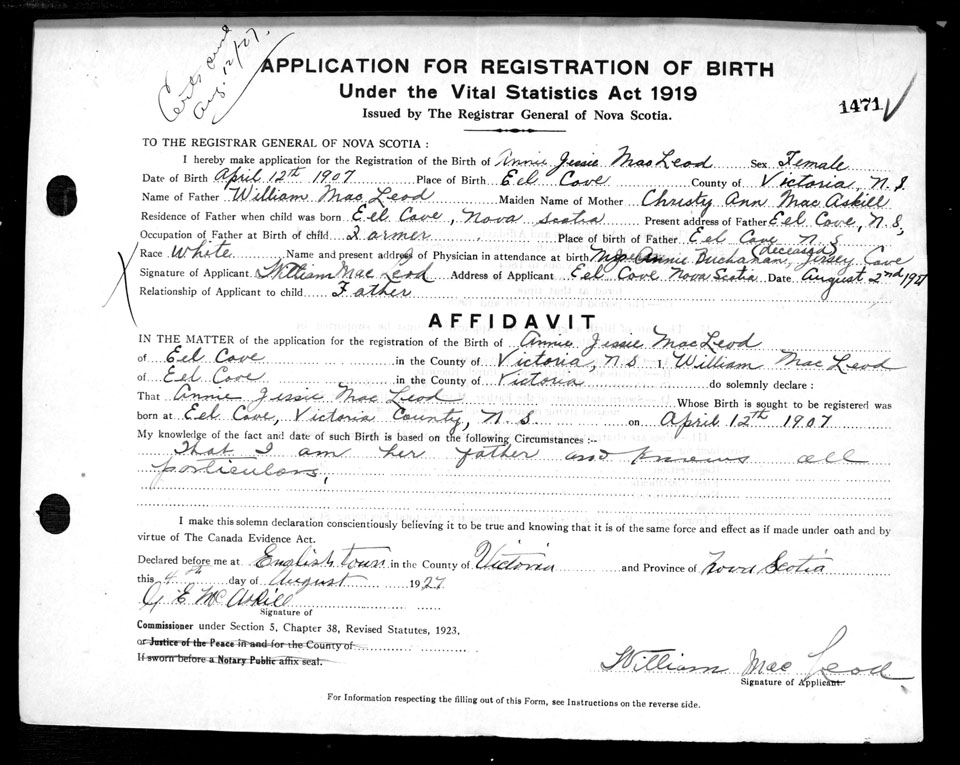 Certs and
Aug. 12/27.
APPLICATION FOR REGISTRATION OF BIRTH
Under the Vital Statistics Act 1919
1471
Issued by The Registrar General of Nova Scotia.
TO THE REGISTRAR GENERAL OF NOVA SCOTIA:
I hereby make application for the Registration of the Birth of Annie Jessie MacLeod Sex Female
Date of Birth April 12th 1907 Place of Birth Eel Cove County of Victoria, N.S.
Name of Father William MacLeod Maiden Name of Mother Christy Ann MacAskill
Residence of Father when child was born Eel Cove, Nova Scotia Present address of Father Eel Cove, N.S,
Occupation of Father at Birth of child Farmer Place of birth of Father Eel Cove N.S
Race White Name and present address of Physician in attendance at birth Annie Buchanan, (deceased) Jersey Cove
Signature of Applicant William MacLeod Address of Applicant Eel Cove Nova Scotia Date August 2nd 1927
Relationship of Applicant to child Father
AFFIDAVIT
IN THE MATTER of the application for the registration of the Birth of Annie Jessie MacLeod
of Eel Cove in the County of Victoria, N.S William MacLeod
of Eel Cove in the County of Victoria do solemnly declare:
That Annie Jessie MacLeod Whose Birth is sought to be registered was
born at Eel Cove, Victoria County, N.S. on April 12th 1907
My knowledge of the fact and date of such Birth is based on the following Circumstances:--
That I am her father and knows all
particulars,
I make this solemn declaration conscientiously believing it to be true and knowing that it is of the same force and effect as if made under oath and by
virtue of The Canada Evidence Act.
Declared before me at Englishtown in the County of Victoria and Province of Nova Scotia
this 4th day of August 1927
G E McAskill
Signature of
Commissioner under Section 5, Chapter 38, Revised Statutes, 1923,
or Justice of the Peace in and for the County of
If sworn before a Notary Public affix seal.
William MacLeod
Signature of Applicant.
For Information respecting the filling out of this Form, see Instructions on the reverse side.